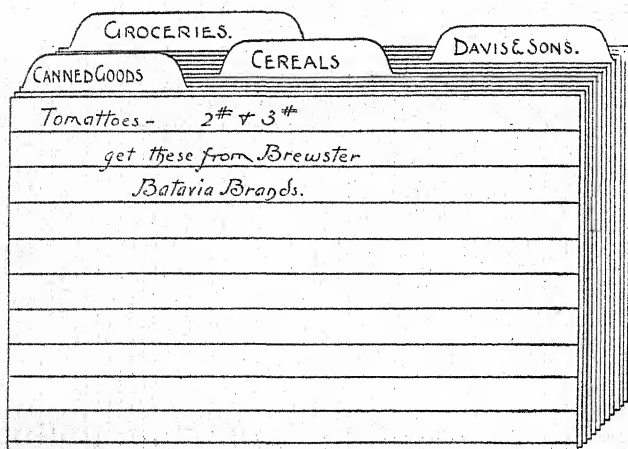 GROCERIES.
DAVIS & SONS.
CEREALS
CANNED GOODS
Tomattoes - 2# & 3#
get these from Brewster
Batavia Brands.